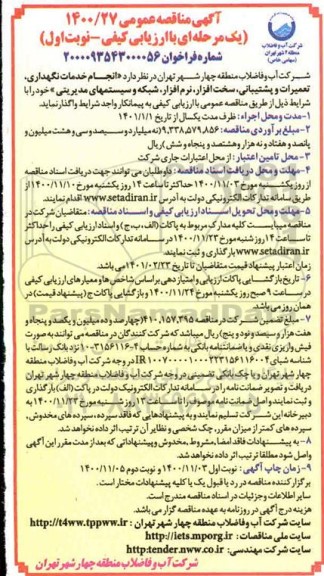 آگهی مناقصه عمومی ۱۴۰۰/۲۷
(یک مرحله ای با ارزیابی کیفی - نوبت اول)
شماره فراخوان ۲۰۰۰۰۹۳۵۴۳۰۰۰۰۵۶
شرکت آب و فاضلاب
منطقه ۴ شهر تهران
(سهامی خاص)
شرکت آب و فاضلاب منطقه چهار شهر تهران در نظر دارد «انجام خدمات نگهداری،
تعمیرات و پشتیبانی، سخت افزار، نرم افزار، شبکه و سیستمهای مدیریتی» خود را با
شرایط ذیل از طریق مناقصه عمومی با ارزیابی کیفی به پیمانکار واجد شرایط واگذار نماید.
۱- مدت و محل اجراء: ظرف مدت یکسال از تاریخ ۱۴۰۱/۱/۱
۲- مبلغ برآوردی مناقصه: ۹،۳۳۸،۵۷۹،۸۵۶ (نه میلیارد و سیصد و سی و هشت میلیون و
پانصد و هفتاد و نه هزار و هشتصد و پنجاه و شش) ریال
۳- محل تامین اعتبار: از محل اعتبارات جاری شرکت
۴- مهلت و محل دریافت اسناد مناقصه: داوطلبان می توانند جهت دریافت اسناد مناقصه
از روز یکشنبه مورخ ۱۴۰۰/۱۱/۰۳ حداکثر تا ساعت ۱۴ روز یکشنبه مورخ ۱۴۰۰/۱۱/۱۰ از
طریق سامانه تدارکات الکترونیکی دولت به آدرس www.setadiran.ir اقدام نمایند.
۵- مهلت و محل تحویل اسناد ارزیابی کیفی و اسناد مناقصه: متقاضیان شرکت در
مناقصه میبایست کلیه مدارک مربوط به پاکات (الف، ب، ج) و اسناد ارزیابی کیفی را حداکثر
تا ساعت ۱۴ روز شنبه مورخ ۱۴۰۰/۱۱/۲۳ در سامانه تدارکات الکترونیکی دولت به آدرس
www.setadiran.ir بارگذاری و ثبت نمایند.
زمان اعتبار پیشنهاد قیمت متقاضیان تا تاریخ ۱۴۰۱/۰۲/۲۳ می باشد.
۶- تاریخ بازگشایی پاکات ارزیابی و امتیازدهی بر اساس شاخص ها و معیارهای ارزیابی کیفی
در ساعت ۹ صبح روز یکشنبه مورخ ۱۴۰۰/۱۱/۲۴ و بازگشایی پاکات ج (پیشنهاد قیمت) در
همان روز می باشد.
۷- مبلغ تضمین شرکت در مناقصه ۴۱۰،۱۵۷،۳۹۵ (چهارصد و ده میلیون و یکصد و پنجاه و
هفت هزار و سیصد و نود و پنج) ریال میباشد که شرکت کنندگان در مناقصه می توانند به صورت
فیش واریزی نقدی و یا ضمانتنامه بانکی به شماره حساب ۴-۳۱۵۶۱۱۶-۱۰ نزد بانک رسالت با
شناسه شبای در وجه شرکت آب و فاضلاب منطقه
چهار شهر تهران و یا چک بانکی تضمینی در وجه شرکت آب و فاضلاب منطقه چهار شهر تهران
دریافت و تصویر ضمانت نامه را در سامانه تدارکات الکترونیک دولت در پاکت (الف) بارگذاری
و ثبت نمایند و اصل ضمانت نامه را حداکثر تا ساعت ۱۴ روز شنبه مورخ ۱۴۰۰/۱۱/۲۳ به
دبیرخانه این شرکت تسلیم نمایند و به پیشنهادهایی که فاقد سپرده، سپرده های مخدوش،
سپرده های کمتر از میزان مقرر، چک شخصی و نظایر آن ترتیب اثر داده نخواهد شد.
۸- به پیشنهادات فاقد امضا، مشروط، مخدوش و پیشنهاداتی که بعد از مدت مقرر این آگهی
واصل شود مطلقا ترتیب اثر داده نخواهد شد.
۹- زمان چاپ آگهی: نوبت اول ۱۴۰۰/۱۱/۰۳ و نوبت دوم ۱۴۰۰/۱۱/۰۵
برگزار کننده مناقصه در رد یا قبول یک یا کلیه پیشنهادات مختار است.
سایر اطلاعات و جزئیات در اسناد مناقصه مندرج است.
هزینه درج آگهی در روزنامه به عهده مناقصه گزار می باشد.
سایت شرکت آب و فاضلاب منطقه چهار شهر تهران: http://t4ww.tppww.ir
سایت ملی مناقصات: http://iets.mporg.ir
سایت شرکت مهندسی: http:tender.nww.co.ir
شرکت آب و فاضلاب منطقه چهار شهر تهران